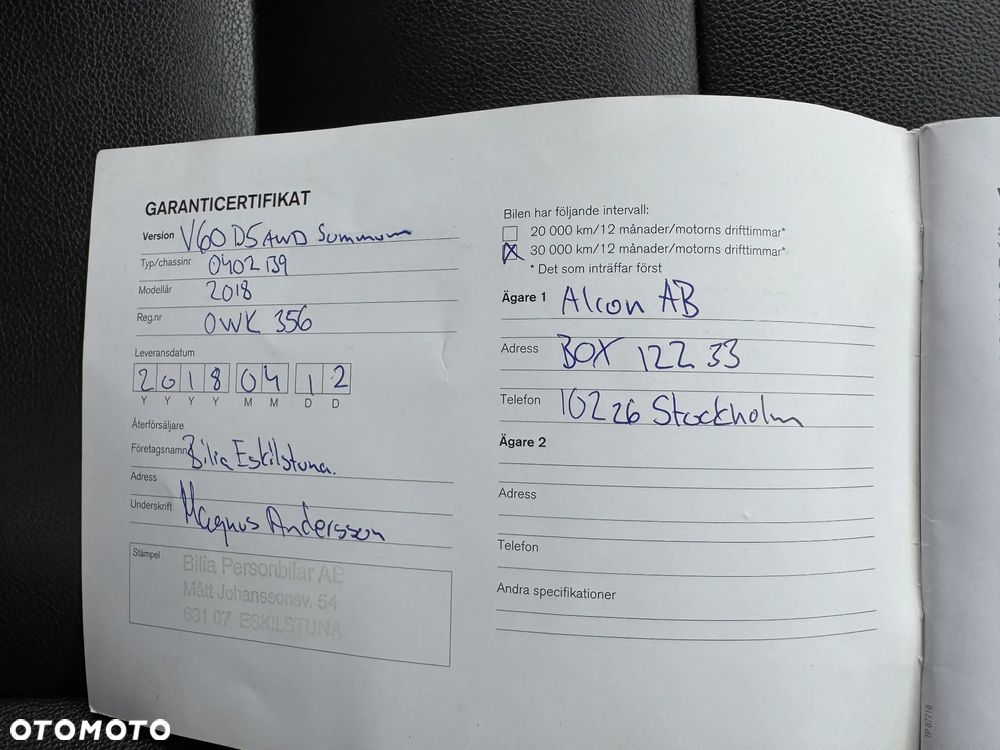 GARANTICERTIFIKAT
Version V60 D5 AWD Summum
Typ/chassinr 0402139
Modellår 2018
Reg.nr OWK 356
Leveransdatum
2018 04 12
Y Y Y Y M M D D
Återförsäljare
Företagsnamn Bilia Eskilstuna.
Adress
Underskrift Magnus Andersson
Stämpel
Bilia Personbilar AB
Mått Johanssonsv. 54
631 07 ESKILSTUNA
Bilen har följande intervall:
20 000 km/12 månader/motorns drifttimmar*
30 000 km/12 månader/motorns drifttimmar*
* Det som inträffar först
Ägare 1 Alcon AB
Adress BOX 122 33
Telefon 102 26 Stockholm
Ägare 2
Adress
Telefon
Andra specifikationer
TP 87718
OTOMOTO